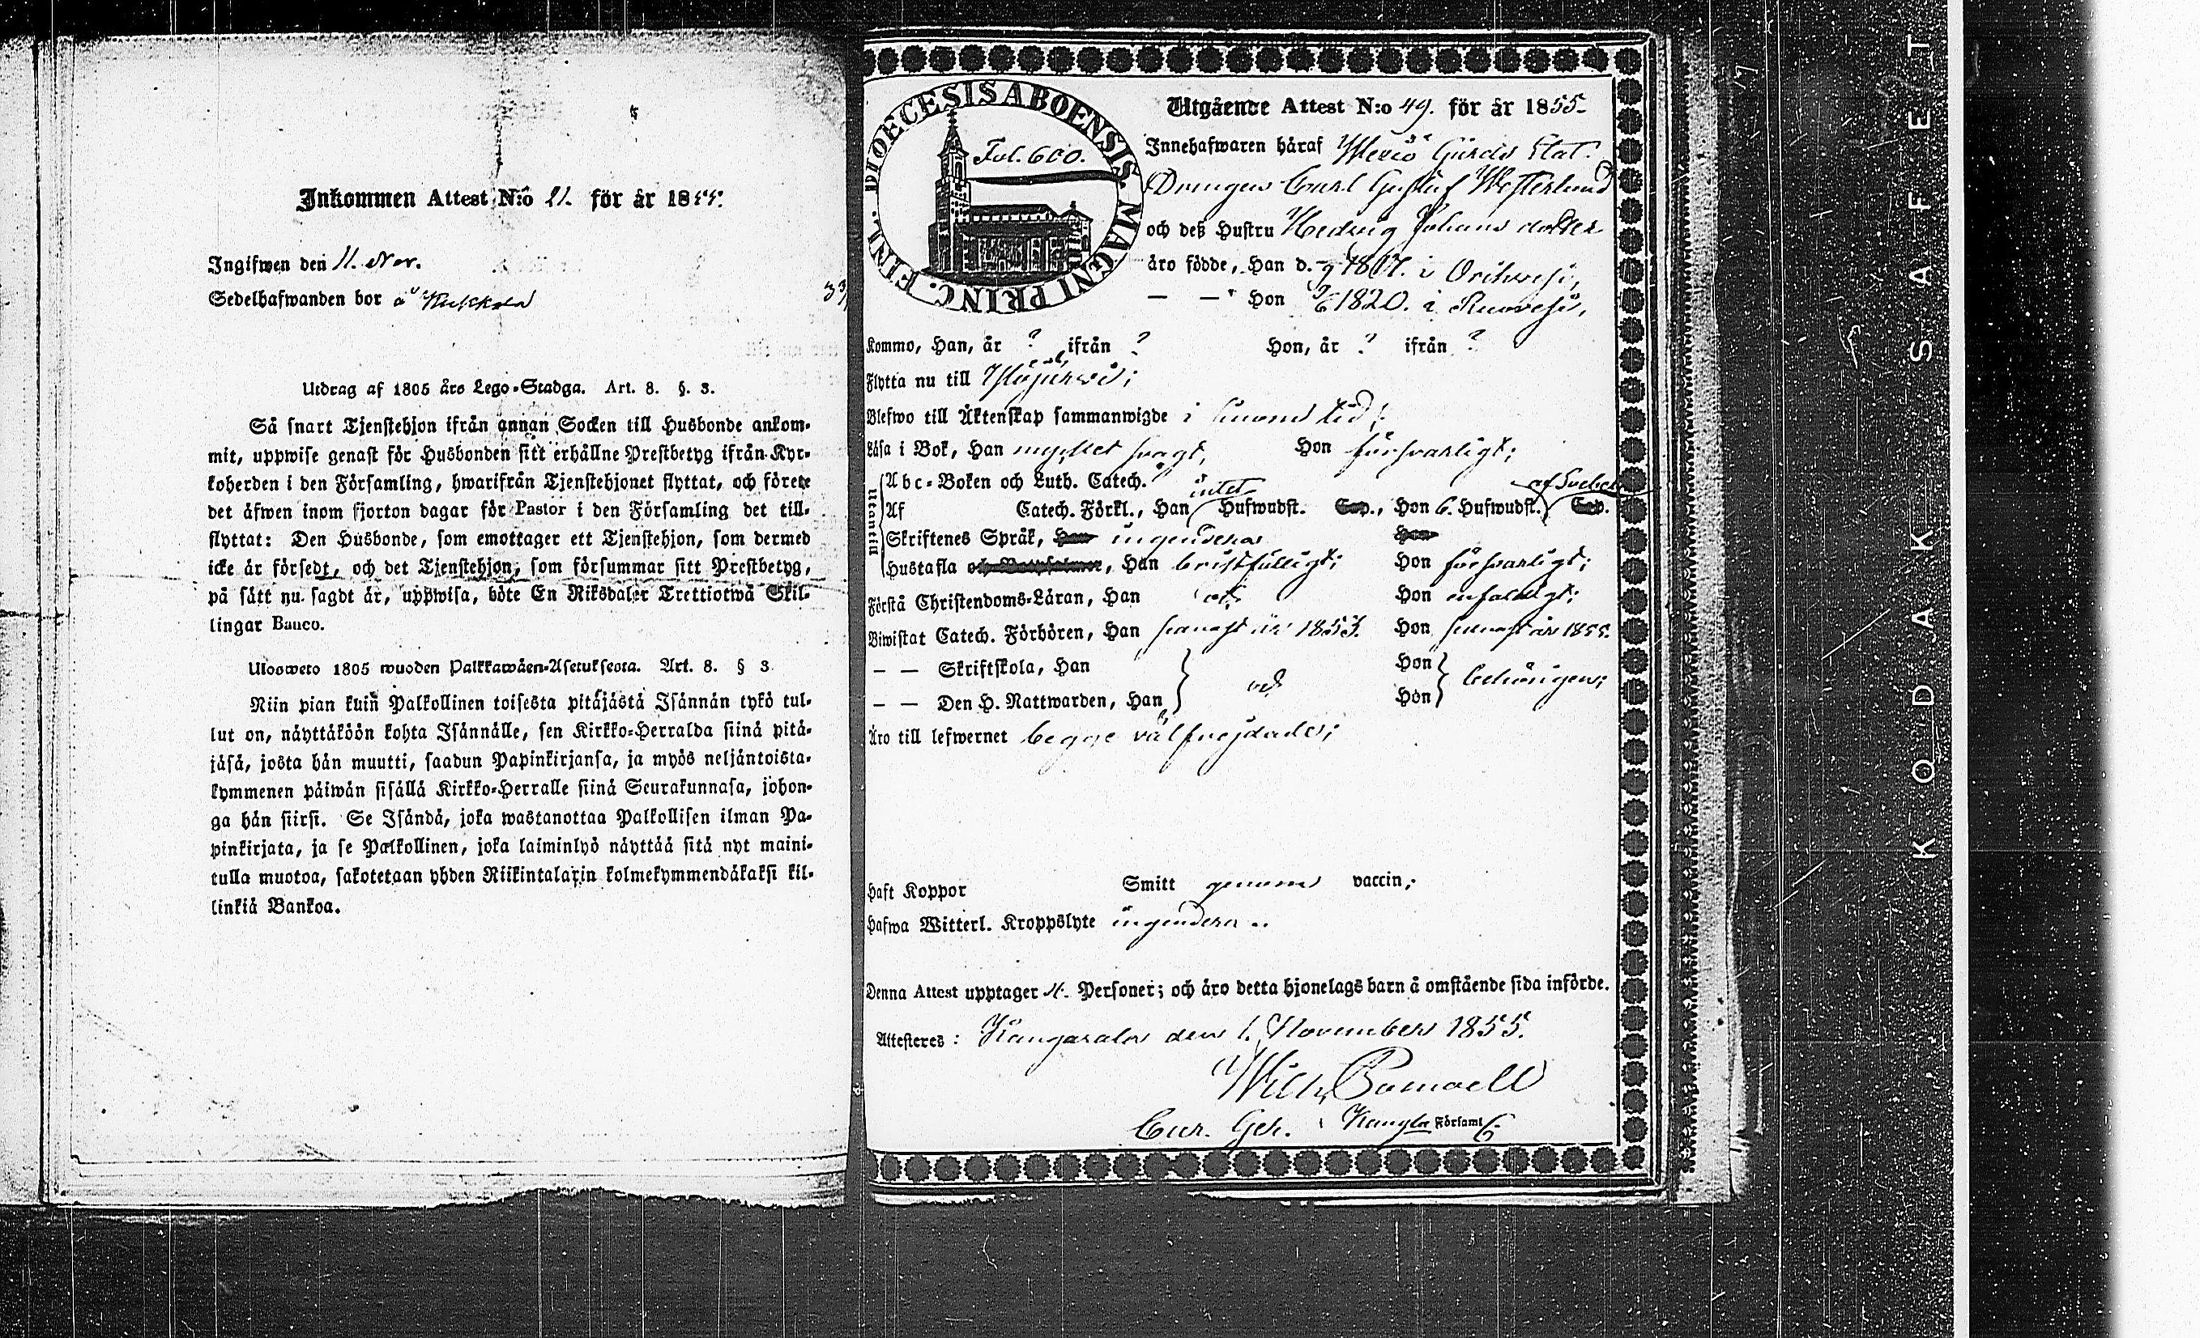 Inkommen Attest N:o 21. för år 1855.
Ingifwen den 11. Nov.
Sedelhafwanden bor å Kukkola
Utdrag af 1805 års Lego-Stadga. Art. 8. §. 3.
Så snart Tjenstehjon ifrån annan Socken till Husbonde ankom-
mit, uppwise genast för Husbonden sitt erhållne Prestbetyg ifrån Kyr-
koherden i den Församling, hwarifrån Tjenstehjonet flyttat, och förete
det äfwen inom fjorton dagar för Pastor i den Församling det till-
flyttat: Den Husbonde, som emottager ett Tjenstehjon, som dermed
icke är försedt, och det Tjenstehjon, som försummar sitt Prestbetyg,
på sätt nu sagdt är, uppwisa, böte En Riksdaler Trettiotwå Skil-
lingar Banco.
Ulosweto 1805 wuoden Palkkawäen-Asetuksesta. Art. 8. § 3
Niin pian kuin Palkollinen toisesta pitäjästä Isännän tykö tul-
lut on, näyttäköön kohta Isännälle, sen Kirkko-Herralda siinä pitä-
jäsä, josta hän muutti, saadun Papinkirjansa, ja myös neljäntoista-
kymmenen päiwän sisällä Kirkko-Herralle siinä Seurakunnasa, johon-
ga hän siirsi. Se Isändä, joka wastanottaa Palkollisen ilman Pa-
pinkirjata, ja se Palkollinen, joka laiminlyö näyttää sitä nyt maini-
tulla muotoa, sakotetaan yhden Riikintalarin kolmekymmendäkaksi kil-
linkiä Bankoa.
DIOECESIS ABOENSIS. MAGNI PRINC. FINL.
Fol. 600.
Utgående Attest N:o 49. för år 1855.
Innehafwaren häraf Gårds Stat.
Drängen Carl Gustaf Westerlund
och deß Hustru Hedvig Johans dotter
äro födde, Han d. 1817. i Orihvesi,
— — Hon 1820. i Ruovesi,
Kommo, Han, år ? ifrån ? Hon, år ? ifrån ?
Flytta nu till Ylöjärvi;
Blefwo till Äktenskap sammanwigde i sinom tid;
Läsa i Bok, Han mycket svagt, Hon försvarligt;
Utantill
Abc-Boken och Luth. Catech.
Af Catech. Förkl., Han intet Hufwudst. Cap., Hon 6. Hufwudst. af Svebel. Cap.
Skriftenes Språk, Han ingendera Hon
Hustafla och Botpsalmer, Han bristfälligt; Hon försvarligt;
Förstå Christendoms-Läran, Han Hon enfaldigt;
Biwistat Catech. Förhören, Han senast år 1853. Hon senast år 1855.
— — Skriftskola, Han Hon
— — Den H. Nattwarden, Han Hon behörigen;
Äro till lefwernet begge välfrejdade;
Haft Koppor Smitt genom vaccin;
Hafwa Witterl. Kroppslyte ingendera
Denna Attest upptager 4. Personer; och äro detta hjonelags barn å omstående sida införde.
Attesteres: Kangasala den 1. November 1855.
Wilh.
Cur. Församl.
KODAK SAFET